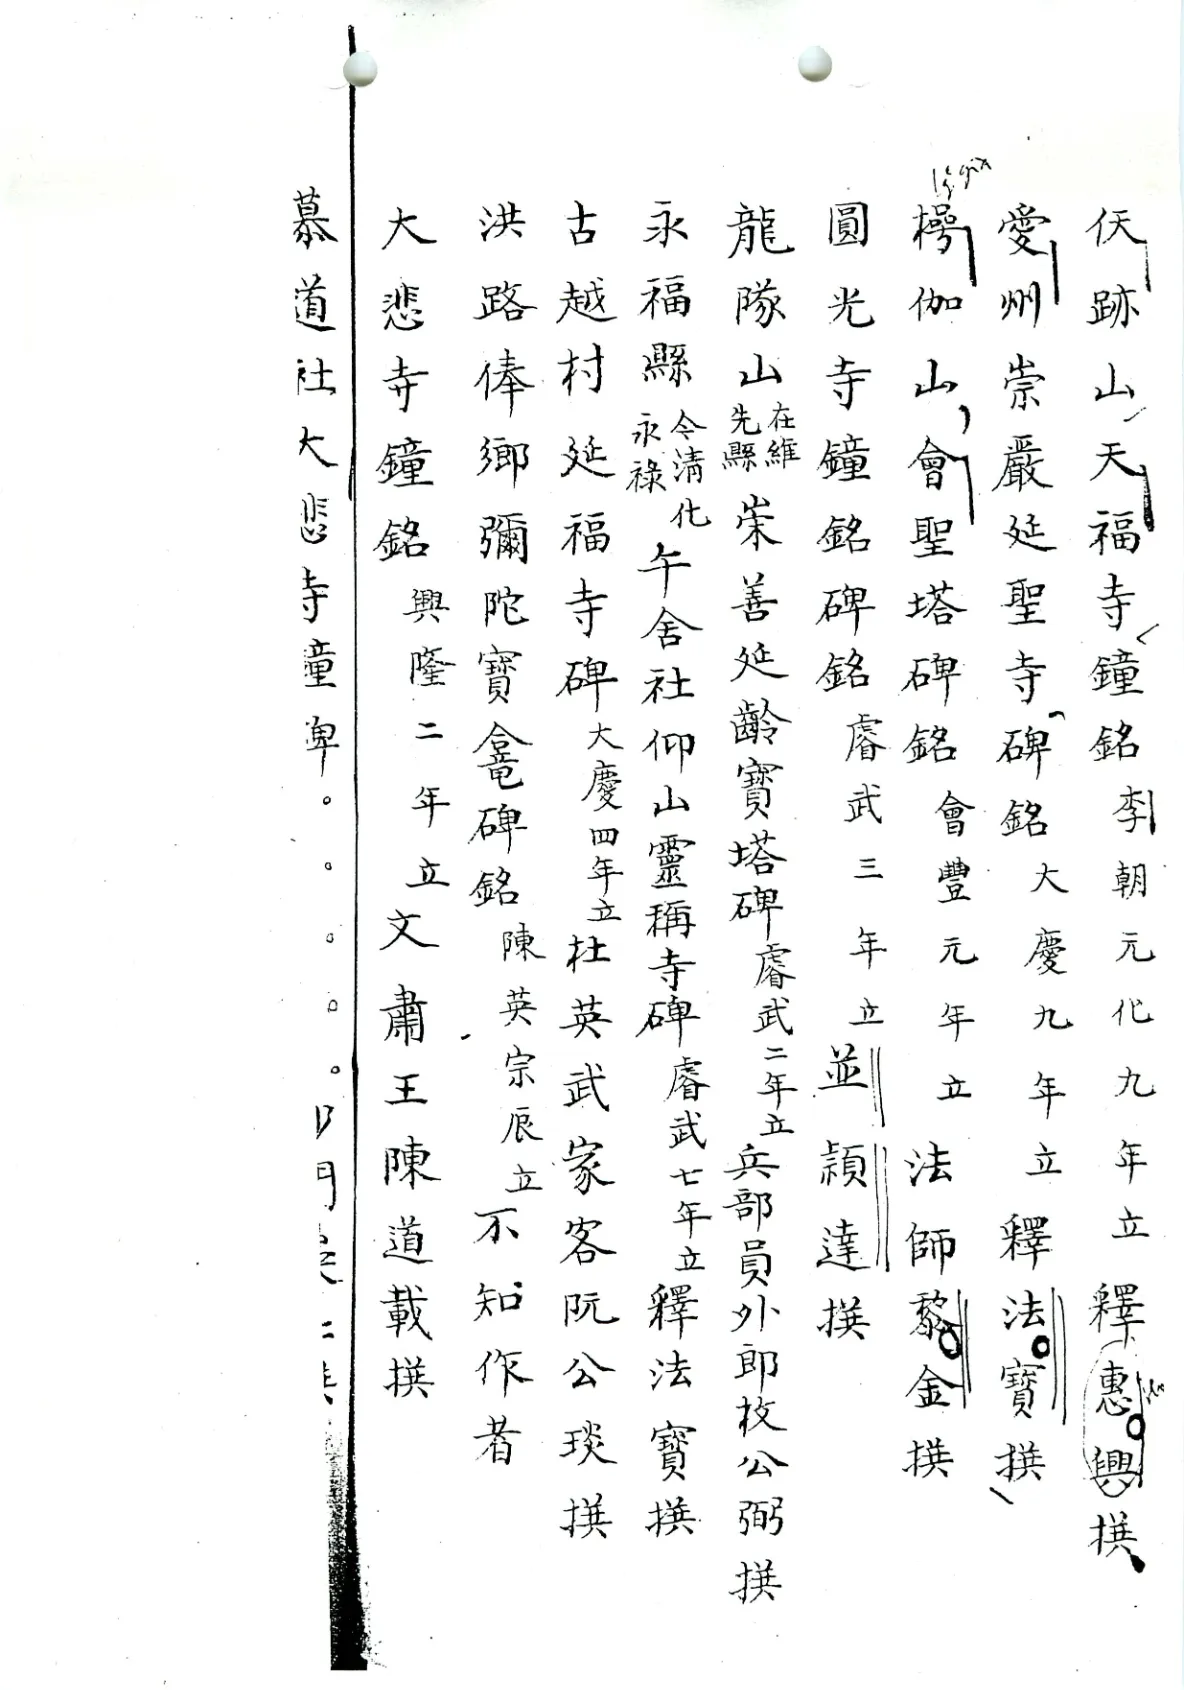 仸跡山天福寺鐘銘李朝元化九年立釋惠興撰
愛州崇嚴延聖寺碑銘大慶九年立釋法寶撰
楞伽山會聖塔碑銘會豐元年立法師黎金撰
圓光寺鐘銘碑銘睿武三年立並穎達撰
龍隊山在維先縣崇善延齡寶塔碑睿武二年立兵部員外郎枚公弼撰
永福縣今清化永祿午舍社仰山靈稱寺碑睿武七年立釋法寶撰
古越村延福寺碑大慶四年立杜英武家客阮公琰撰
洪路俸鄉彌陀寶龕碑銘陳英宗辰立不知作者
大悲寺鐘銘興隆二年立文肅王陳道載撰
慕道社大悲寺